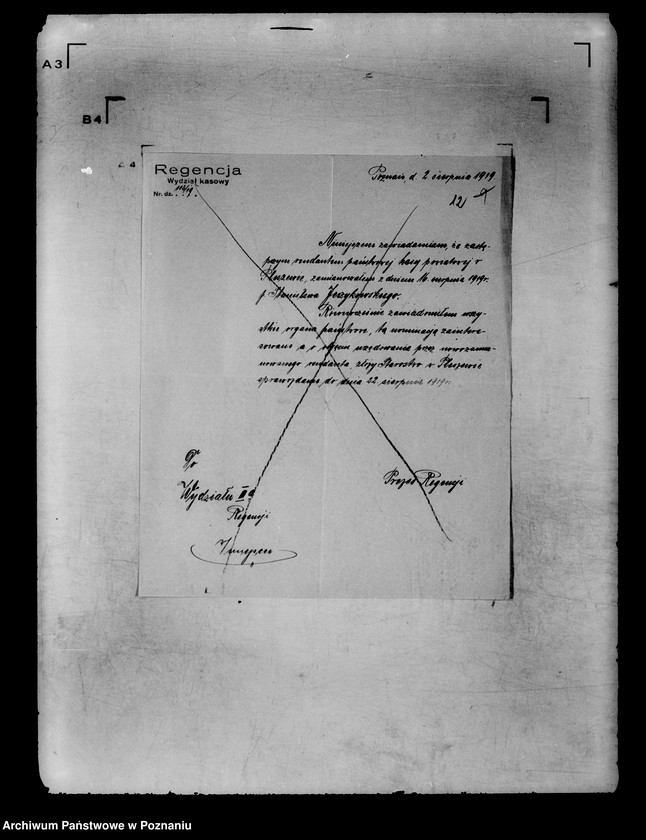 A3
B4
A 4
Regencja
Wydział kasowy
Nr. dz.
Poznań, d. 2 sierpnia 1919
12
Niniejszem zawiadamiam, że zastę-
pczym rendantem państwowej kasy powiatowej w
Pleszewie, zamianowałem z dniem 16. sierpnia 1919r.
p. Stanisława Jezykowskiego.
Równocześnie zawiadomiłem wszy-
stkie organa państwowe, tą nominacją zaintere-
sowane a o objęciu urzędowania przez nowozamia-
nowanego rendanta złoży Starostwo w Pleszewie
sprawozdanie do dnia 22 sierpnia 1919r.
Do
Wydziału II a
Regencji
w miejscu
Prezes Regencji
Archiwum Państwowe w Poznaniu